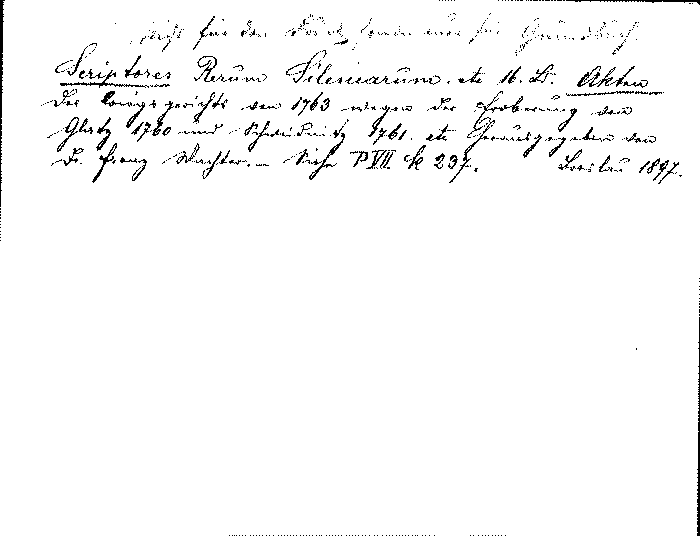 nicht für den Druck, sondern nur für Grundbuch.
Scriptores Rerum Silesiacarum. etc 16. Bd. Akten
des Kriegsgerichts von 1763 wegen der Eroberung von
Glatz 1760 und Schweidnitz 1761. etc Herausgegeben von
Dr. Franz Wachter. – Siehe P VII. k 237. Breslau 1897.